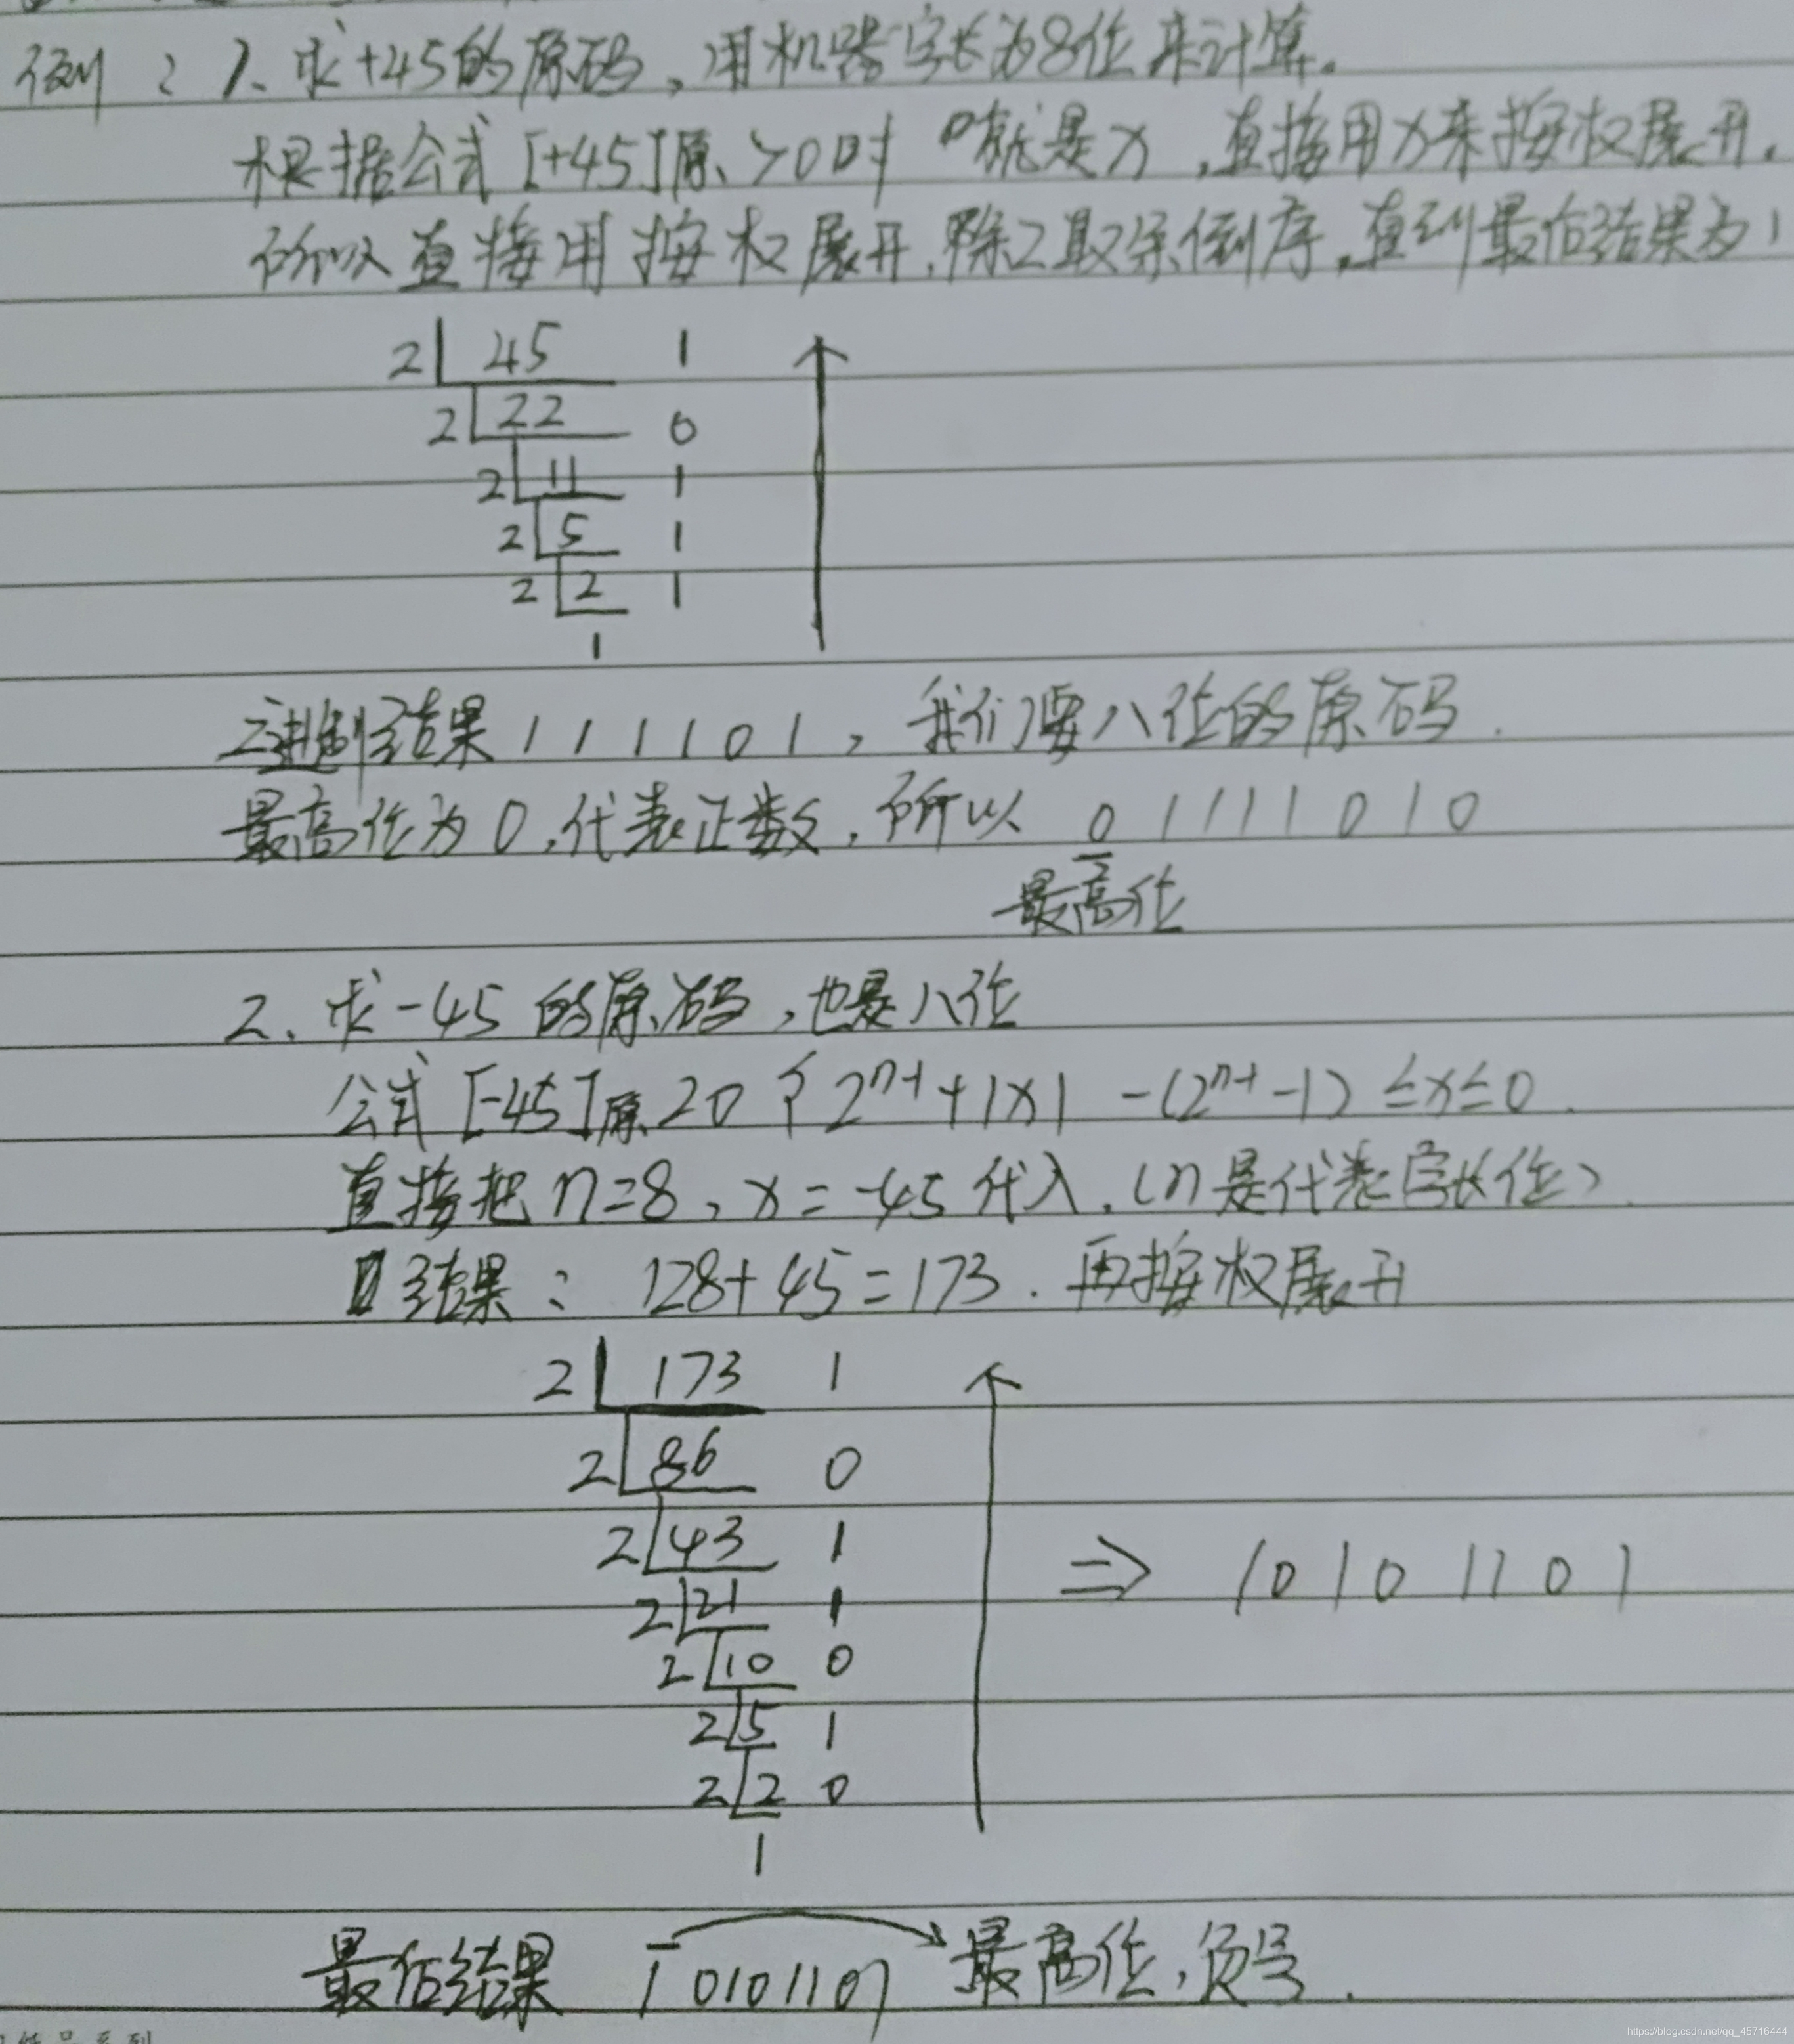 例：1、求+45的原码，用机器字长为8位来计算。
根据公式[+45]原>0时 就是x，直接用x来按权展开，
所以直接用按权展开，除2取余倒序，直到最后结果为1
2 45 1
2 22 0
2 11 1
2 5 1
2 2 1
1
二进制结果111101，我们要八位的原码.
最高位为0，代表正数，所以 01111010
最高位
2、求-45的原码，也是八位
公式[-45]原 { 2ⁿ⁻¹+|x| -(2ⁿ⁻¹-1)≤x≤0.
直接把n=8，x=-45代入，(n是代表字长位)
结果： 128+45=173. 再按权展开
2 173 1
2 86 0
2 43 1 ⇒ 10101101
2 21 1
2 10 0
2 5 1
2 2 0
1
最后结果 10101101 → 最高位，负号.
https://blog.csdn.net/qq_45716444